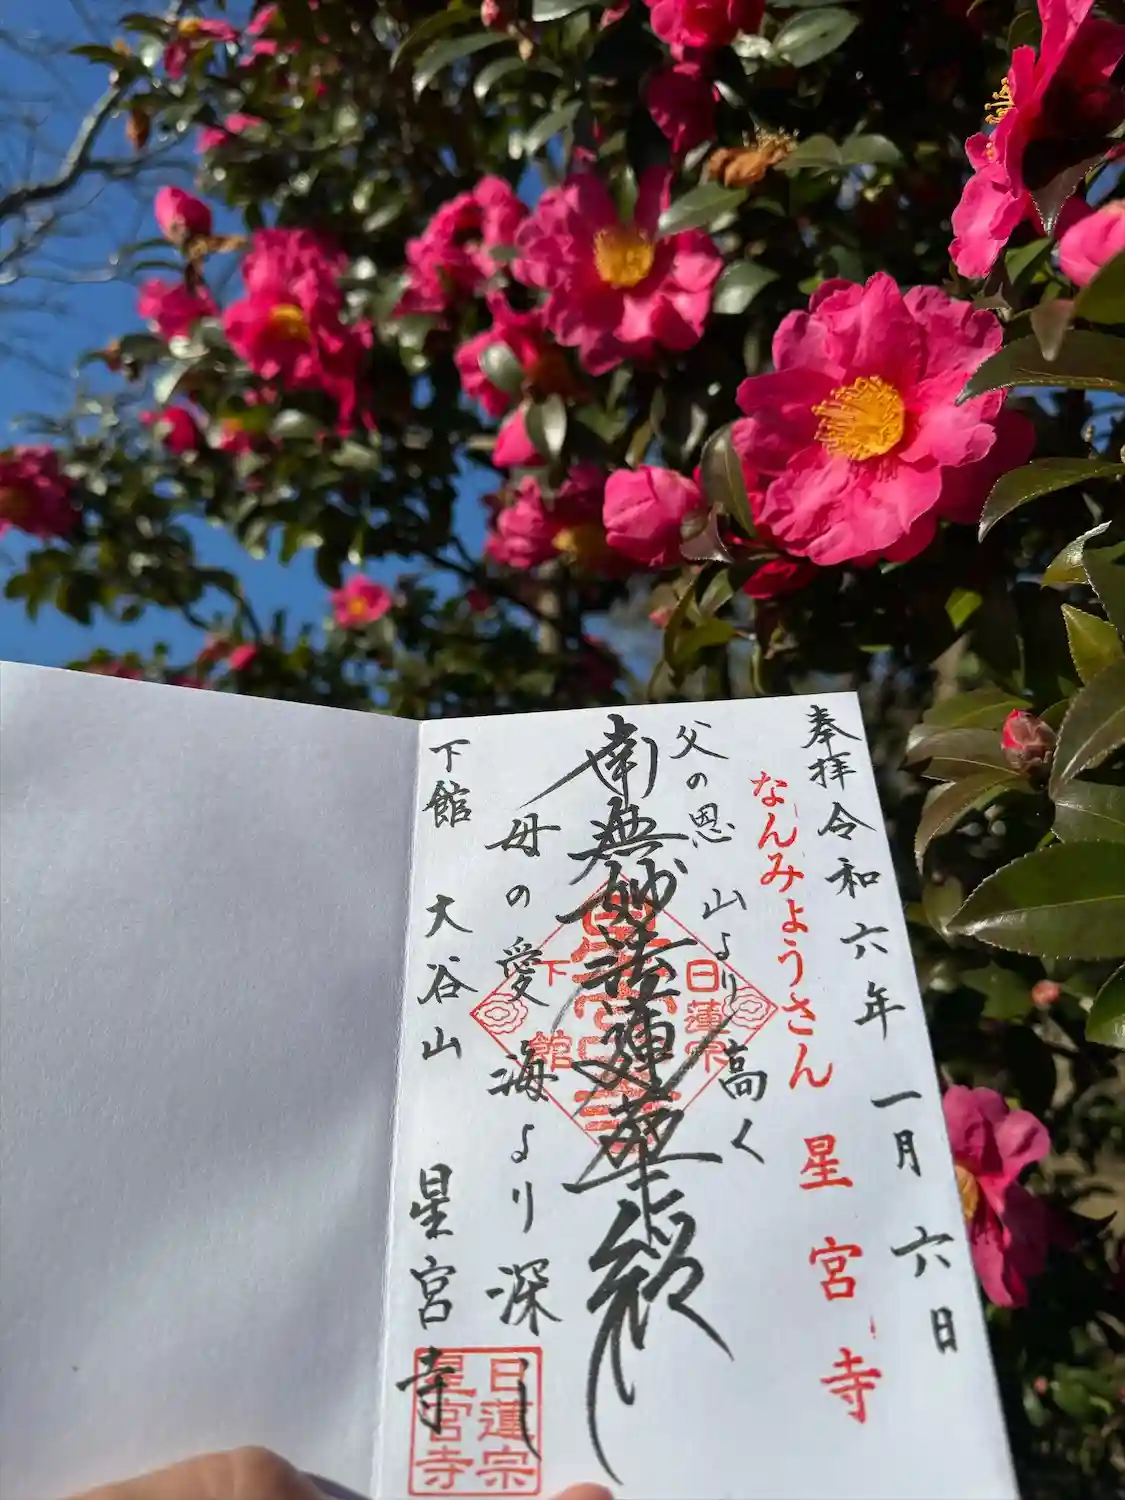 奉拝 令和六年 一月 六日
なんみょうさん 星宮寺
父の恩 山より高く
南無妙法蓮華経
母の愛 海より深し
下館 大谷山 星宮寺
日蓮宗
下館
日蓮宗
星宮寺